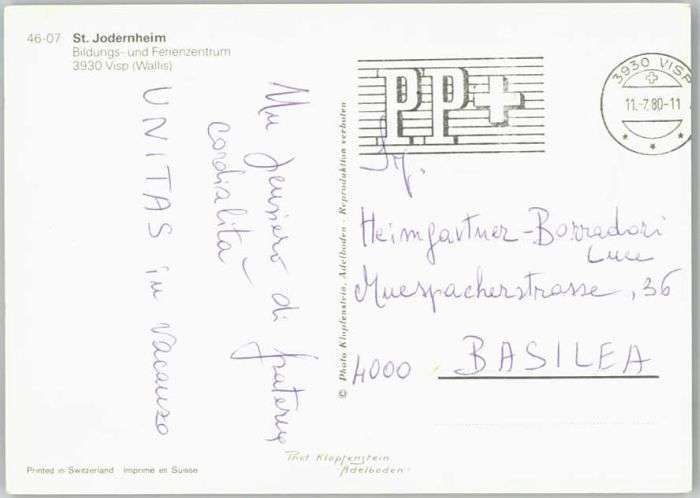 46-07 St. Jodernheim
Bildungs- und Ferienzentrum
3930 Visp (Wallis)
PP+
3930 VISP
11.-7.80-11
Un pensiero di fraterna
cordialità
UNITAS in vacanza
© Photo Klopfenstein, Adelboden - Reproduktion verboten
Heimgartner-Borradori
Luce
Muespacherstrasse, 36
4000 BASILEA
Phot Klopfenstein
Adelboden
Printed in Switzerland Imprimé en Suisse